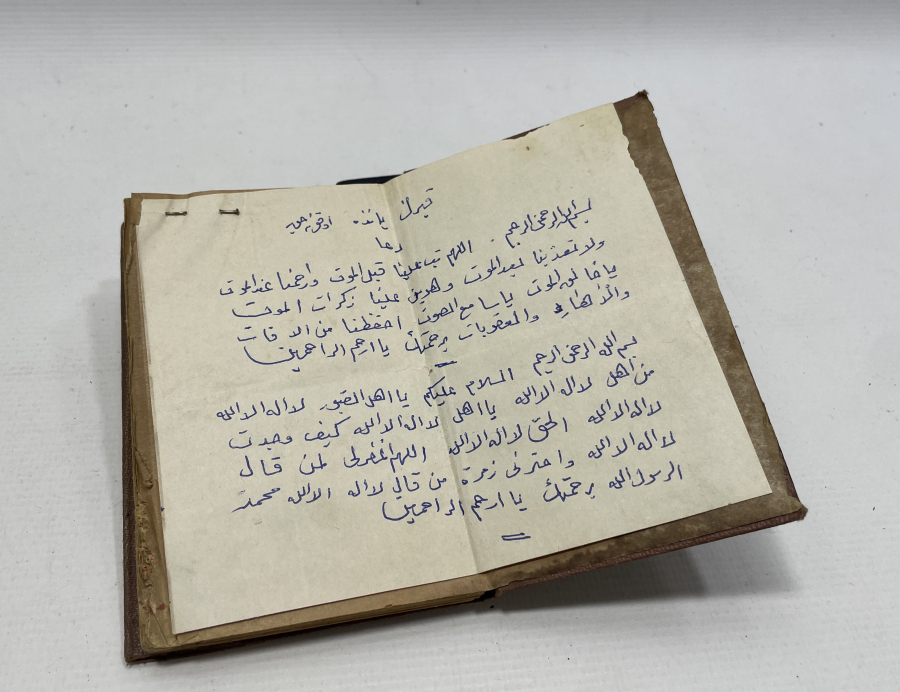 قبرك يانده اوقونه جق
دعا
بسم الله الرحمن الرحيم . اللهم تب علينا قبل الموت وارحمنا عند الموت
ولا تعذبنا بعد الموت وهون علينا زكرات الموت
يا خالق الموت يا سامع الصوت احفظنا من الافات
والأ والعقوبات برحمتك يا ارحم الراحمين
بسم الله الرحمن الرحيم السلام عليكم يا اهل القبور لا اله الا الله
من اهل لا اله الا الله يا اهل لا اله الا الله كيف وجدت
لا اله الا الله الحق لا اله الا الله اللهم اغفرلى لمن قال
لا اله الا الله واحشرنى زمرة من قال لا اله الا الله محمد
الرسول الله برحمتك يا ارحم الراحمين